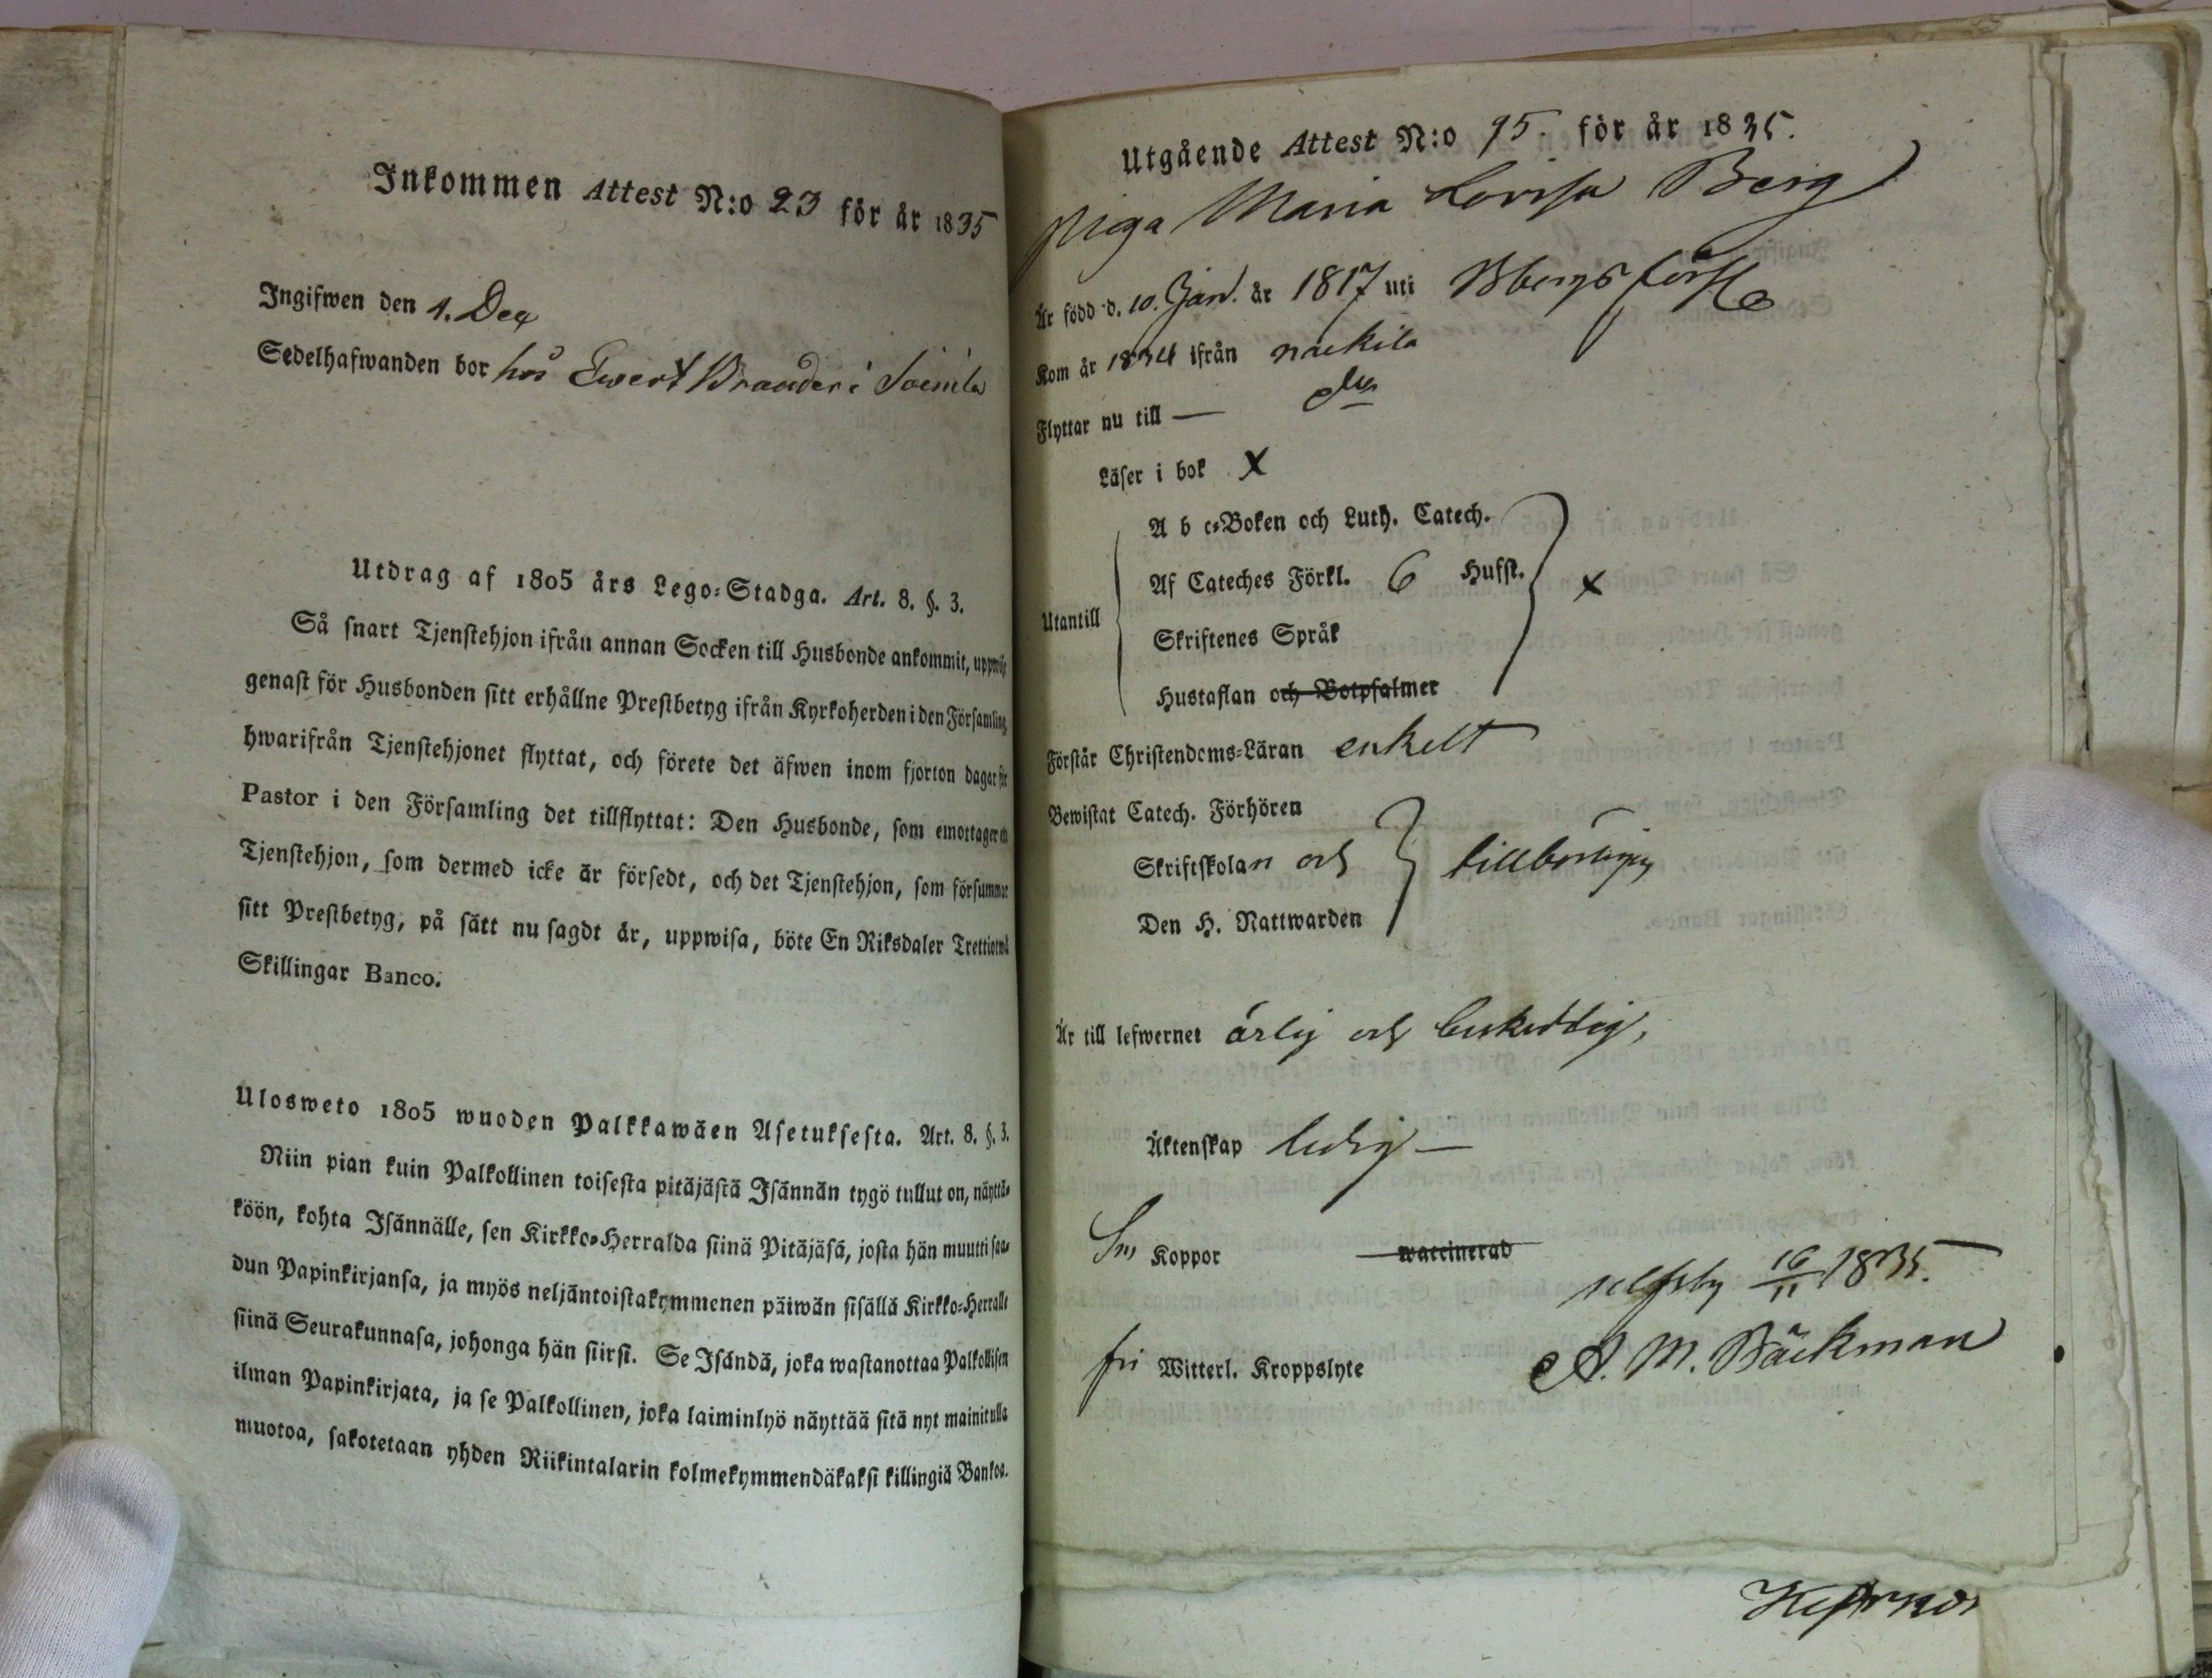 Inkommen Attest N:o 23 för år 1835
Ingifwen den 1. Dec
Sedelhafwanden bor hos Ewert Brander i
Utdrag af 1805 års Lego-Stadga. Art. 8. §. 3.
Så snart Tjenstehjon ifrån annan Socken till Husbonde ankommit, uppwise
genast för Husbonden sitt erhållne Prestbetyg ifrån Kyrkoherden i den Församling,
hwarifrån Tjenstehjonet flyttat, och förete det äfwen inom fjorton dagar för
Pastor i den Församling det tillflyttat: Den Husbonde, som emottager
Tjenstehjon, som dermed icke är försedt, och det Tjenstehjon, som försummar
sitt Prestbetyg, på sätt nu sagdt är, uppwisa, böte En Riksdaler Trettiotwå
Skillingar Banco.
Ulosweto 1805 wuoden Palkkawäen Asetuksesta. Art. 8. §. 3.
Niin pian kuin Palkollinen toisesta pitäjästä Isännän tygö tullut on, näyttä-
köön, kohta Isännälle, sen Kirkko-Herralda siinä Pitäjäsä, josta hän muutti saa-
dun Papinkirjansa, ja myös neljäntoistakymmenen päiwän sisällä Kirkko-Herralle
siinä Seurakunnasa, johonga hän siirsi. Se Isändä, joka wastanottaa Palkollisen
ilman Papinkirjata, ja se Palkollinen, joka laiminlyö näyttää sitä nyt mainitulla
muotoa, sakotetaan yhden Riikintalarin kolmekymmendäkaksi killingiä Bankoa.
Utgående Attest N:o 95. för år 1835.
Piga Maria Lovisa Berg
Är född d. 10. Jan. år 1817 uti
Kom år 1834 ifrån nakila
Flyttar nu till —
Läser i bok x
A b c-Boken och Luth. Catech.
Af Cateches Förkl. 6 Husst.
Utantill x
Skriftenes Språk
Hustaflan och Botpsalmer
Förstår Christendoms-Läran enkelt
Bewistat Catech. Förhören
Skriftskolan och tillbörligen
Den H. Nattwarden
Är till lefwernet ärlig och beskedlig,
Äktenskap ledig —
Koppor waccinerad
16/11 1835.
fri Witterl. Kroppslyte
A. M. Bäckman